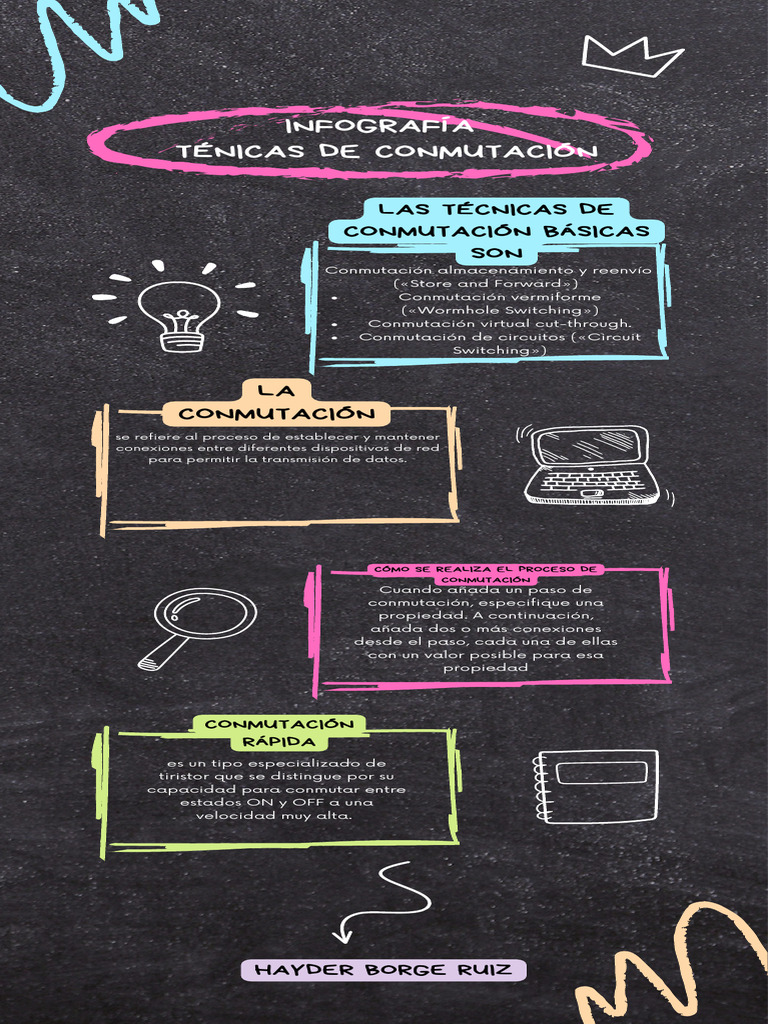 INFOGRAFÍA
TÉNICAS DE CONMUTACIÓN
LAS TÉCNICAS DE
CONMUTACIÓN BÁSICAS
SON
Conmutación almacenamiento y reenvío
(«Store and Forward»)
• Conmutación vermiforme
(«Wormhole Switching»)
• Conmutación virtual cut-through.
• Conmutación de circuitos («Circuit
Switching»)
LA
CONMUTACIÓN
se refiere al proceso de establecer y mantener
conexiones entre diferentes dispositivos de red
para permitir la transmisión de datos.
CÓMO SE REALIZA EL PROCESO DE
CONMUTACIÓN
Cuando añada un paso de
conmutación, especifique una
propiedad. A continuación,
añada dos o más conexiones
desde el paso, cada una de ellas
con un valor posible para esa
propiedad
CONMUTACIÓN
RÁPIDA
es un tipo especializado de
tiristor que se distingue por su
capacidad para conmutar entre
estados ON y OFF a una
velocidad muy alta.
HAYDER BORGE RUIZ